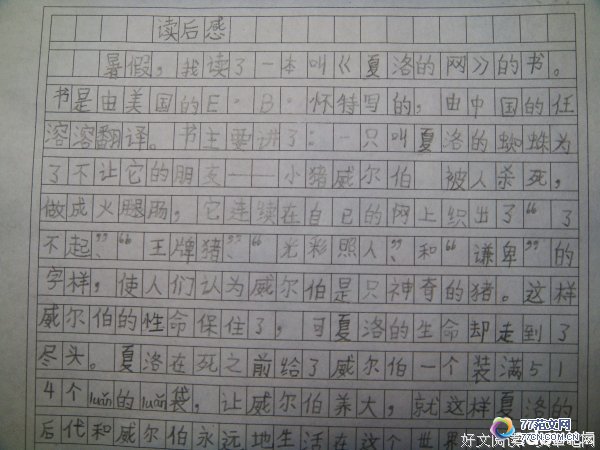 读后感
暑假，我读了一本叫《夏洛的网》的书。
书是由美国的E·B·怀特写的，由中国的任
溶溶翻译。书主要讲了：一只叫夏洛的蜘蛛为
了不让它的朋友——小猪威尔伯 被人杀死，
做成火腿肠，它连续在自已的网上织出了“了
不起”、“王牌猪”、“光彩照人”、和“谦卑”的
字样，使人们认为威尔伯是只神奇的猪。这样
威尔伯的性命保住了，可夏洛的生命却走到了
尽头。夏洛在死之前给了威尔伯一个装满51
4个luǎn的luǎn袋，让威尔伯养大，就这样夏洛的
后代和威尔伯永远地生活在这个世界
77范文网